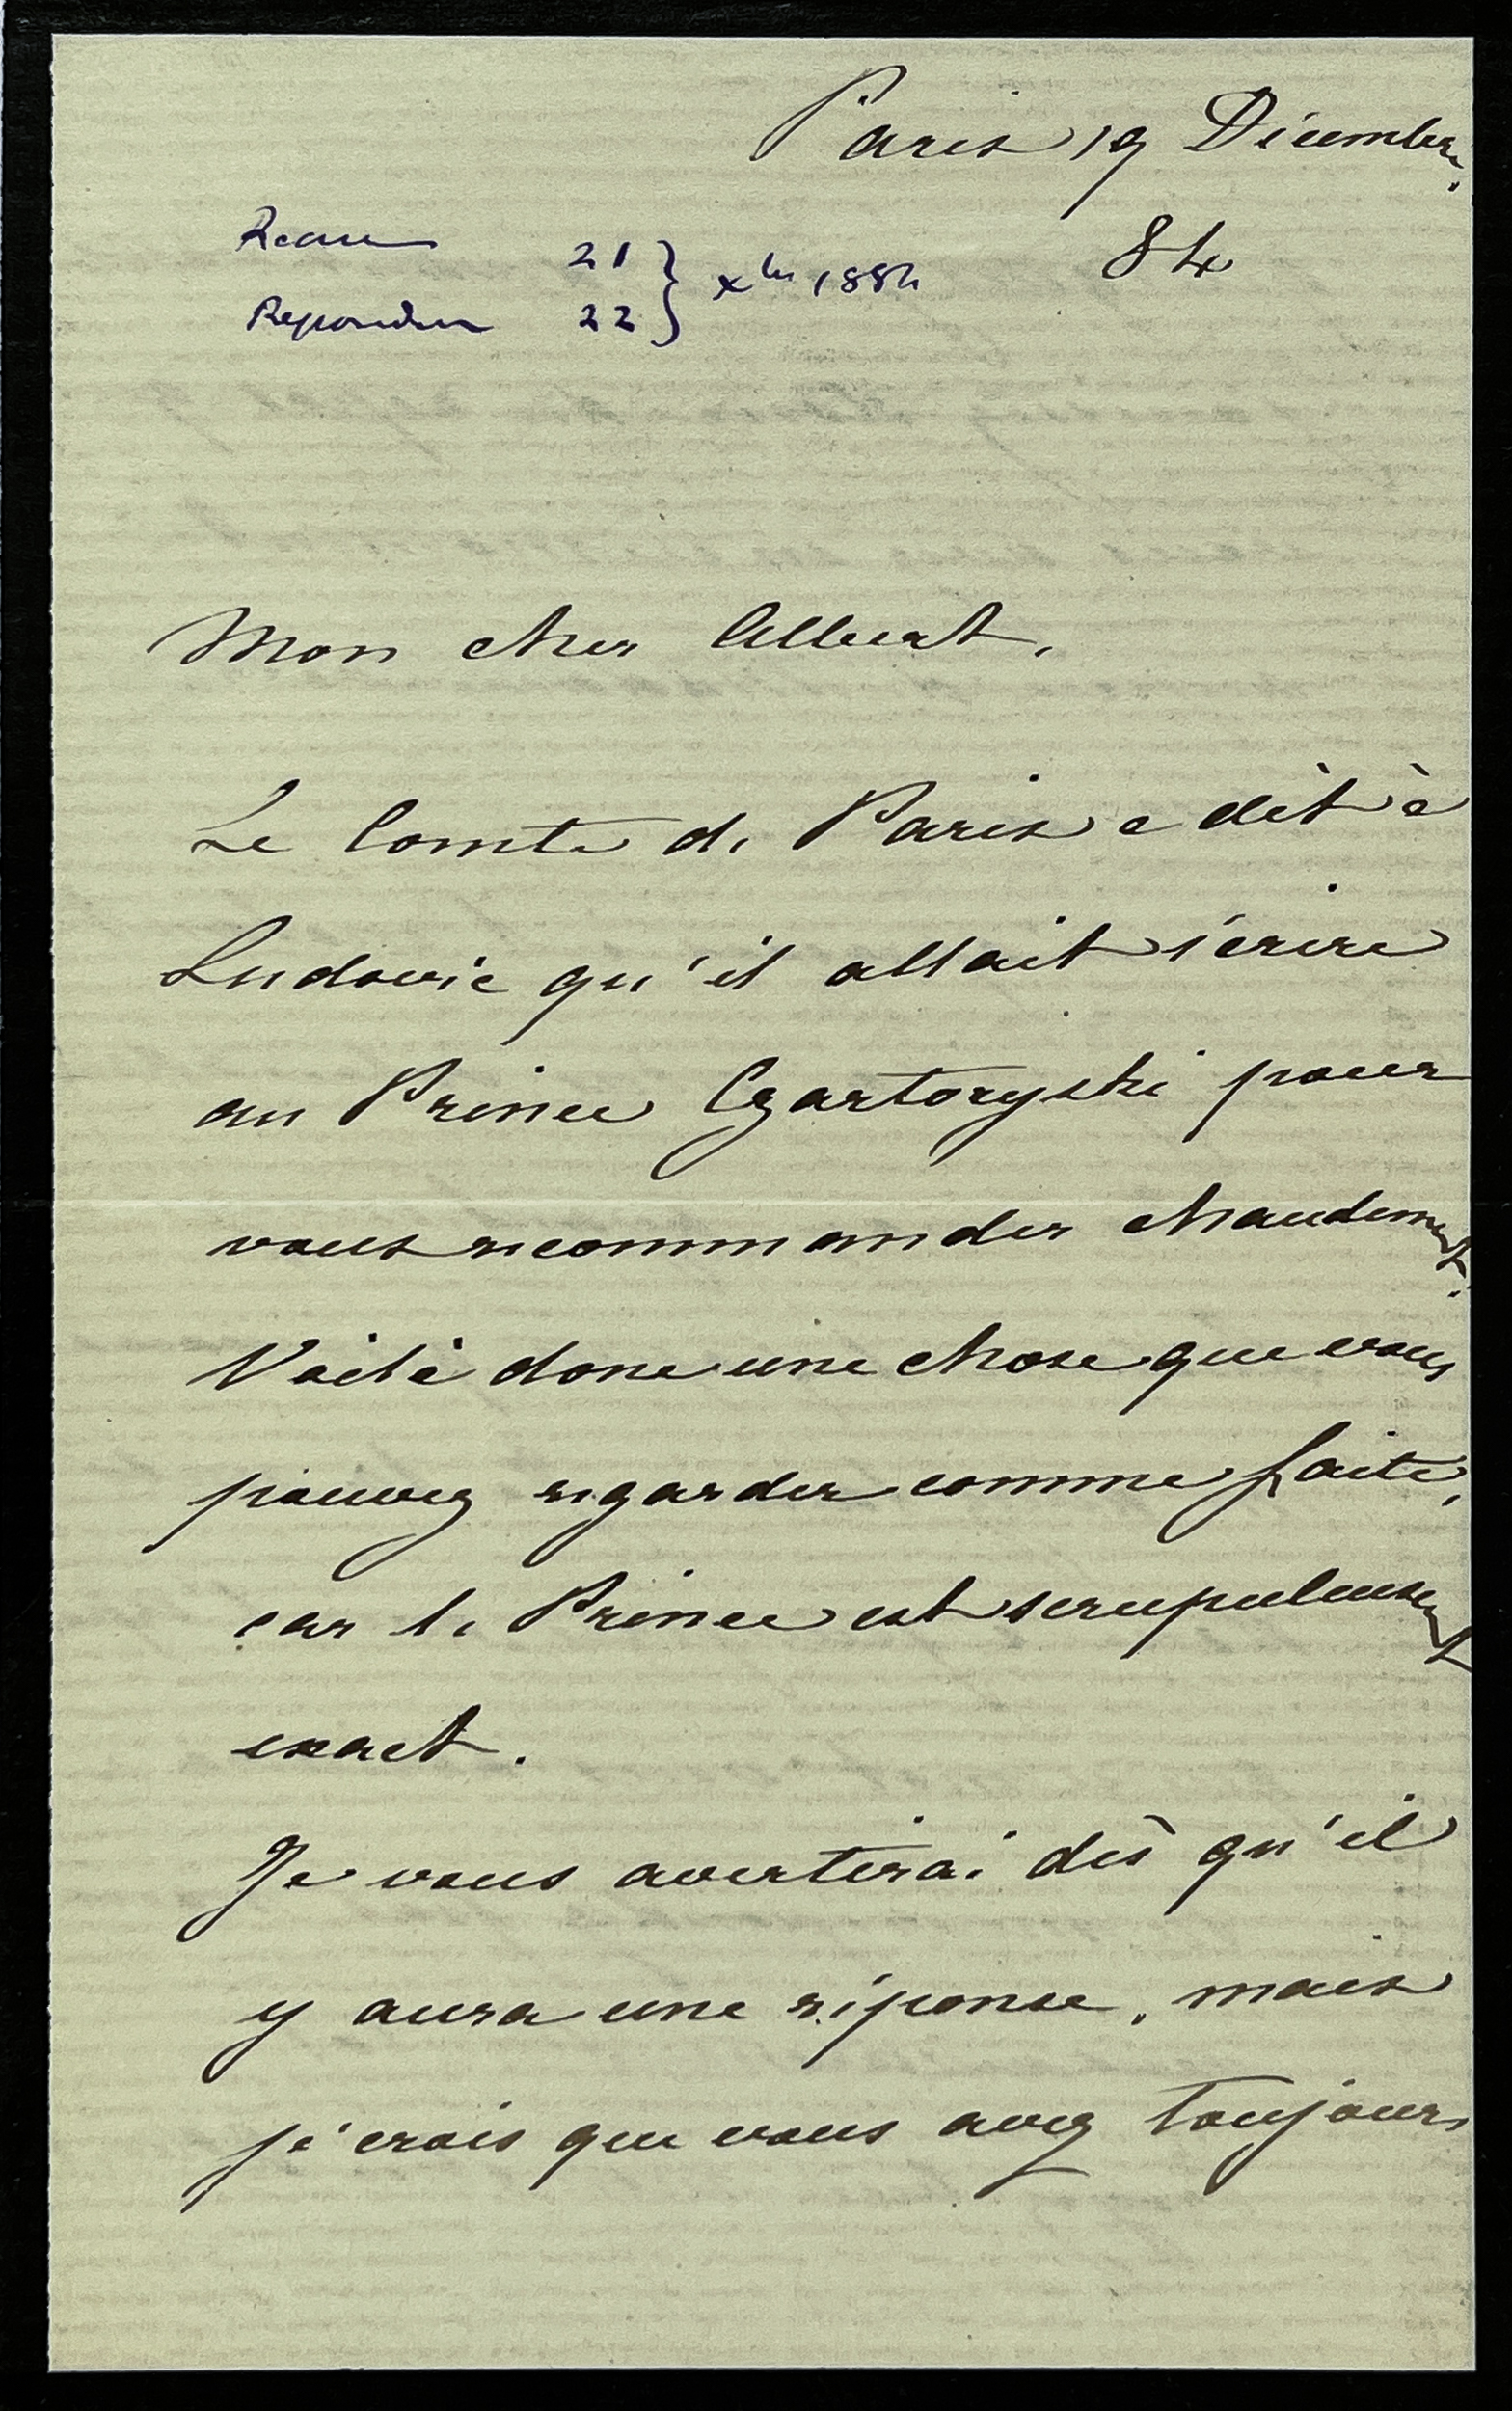 Paris 19 Décembre.
84
Recue 21 } xbre 1884
Repondue 22
Mon cher Albert,
Le Comte de Paris a dit à
Ludovic qu'il allait écrire
au Prince Czartoryski pour
vous recommander chaudement.
Voilà donc une chose que vous
pouvez regarder comme faite,
car le Prince est scrupuleusement
exact.
Je vous avertirai dès qu'il
y aura une réponse, mais
je crois que vous avez toujours